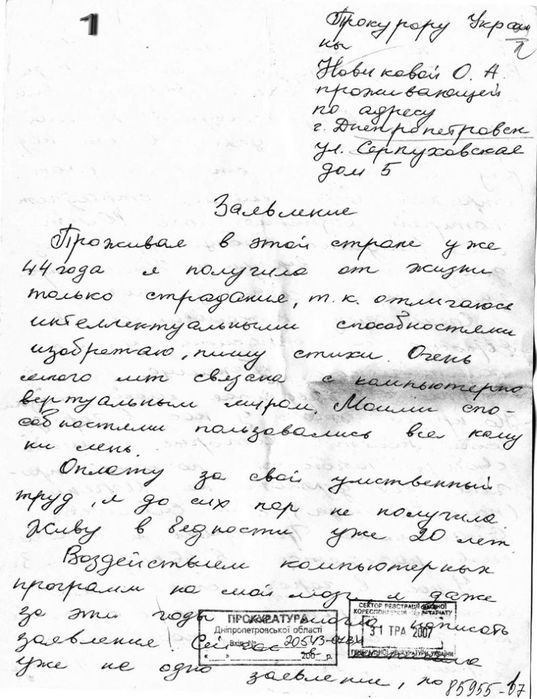 1
Прокурору Укра
ны
Новиковой О. А.
проживающей
по адресу
г. Днепропетровск
ул. Серпуховская
дом 5
Заявление
Проживая в этой стране уже
44 года я получила от жизни
только страдание, т. к. отличаюсь
интеллектуальными способностями
изобретаю, пишу стихи. Очень
много лет связана с компьютерно
вертуальным миром. Моими спо-
собностями пользовались все кому
ни лень.
Оплату за свой умственный
труд, я до сих пор не получила
Живу в бедности уже 20 лет
Воздействием компьютерных
программ на мой мозг я даже
за эти годы написать
заявление. Сейчас
уже не одно заявление, по
ПРОКУРАТУРА
Дніпропетровської області
205
СЕКТОР РЕЄСТРАЦІЇ
31 ТРА 2007
85955-07